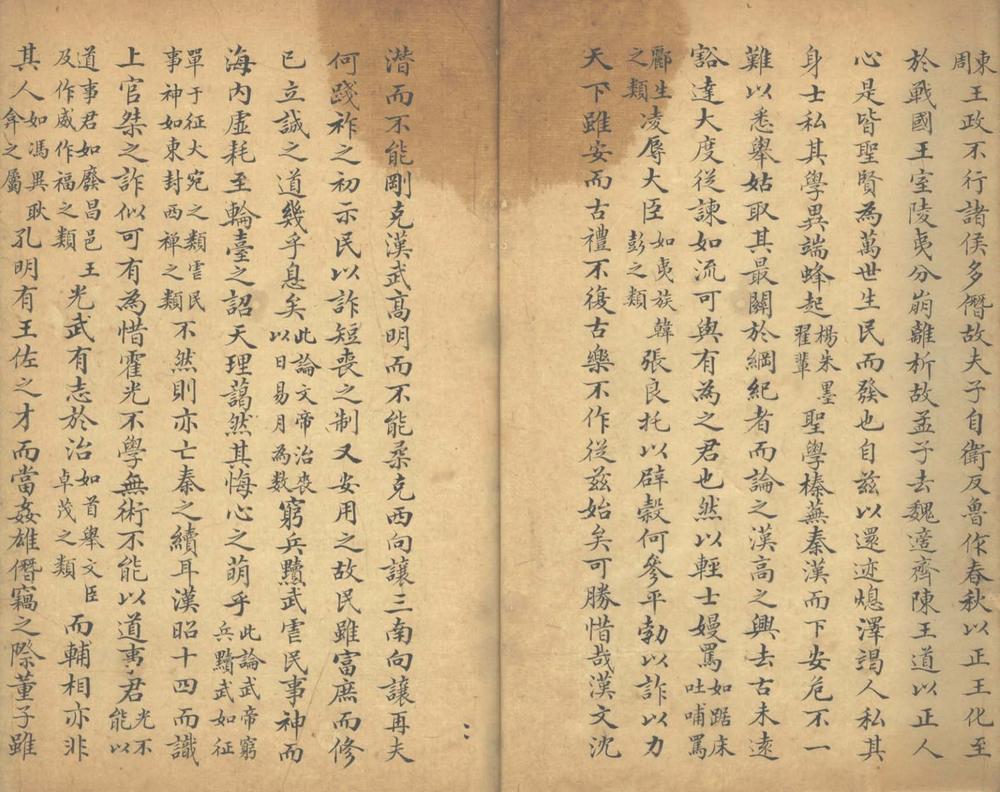 東周王政不行諸侯多僭故夫子自衛反魯作春秋以正王化至
於戰國王室陵夷分崩離析故孟子去魏適齊陳王道以正人
心是皆聖賢為萬世生民而發也自茲以還迹熄澤竭人私其
身士私其學異端蜂起楊朱墨翟輩聖學榛蕪秦漢而下安危不一
難以悉舉姑取其最關於綱紀者而論之漢高之興去古未遠
豁達大度從諫如流可與有為之君也然以輕士嫚罵如踞床吐哺罵
酈生之類凌辱大臣如夷族韓彭之類張良托以辟穀何參平勃以詐以力
天下雖安而古禮不復古樂不作從茲始矣可勝惜哉漢文沈
潛而不能剛克漢武高明而不能柔克西向讓三南向讓再夫
何踐祚之初示民以詐短喪之制又安用之故民雖富庶而修
已立誠之道幾乎息矣此論文帝治喪以日易月為數窮兵黷武害民事神而
海內虛耗至輪臺之詔天理藹然其悔心之萌乎此論武帝窮兵黷武如征
單于征大宛之類害民事神如東封西禪之類不然則亦亡秦之續耳漢昭十四而識
上官桀之詐似可有為惜霍光不學無術不能以道事君光不能以
道事君如廢昌邑王及作威作福之類光武有志於治如首舉文臣卓茂之類而輔相亦非
其人如馮異耿弇之屬孔明有王佐之才而當姦雄僭竊之際董子雖